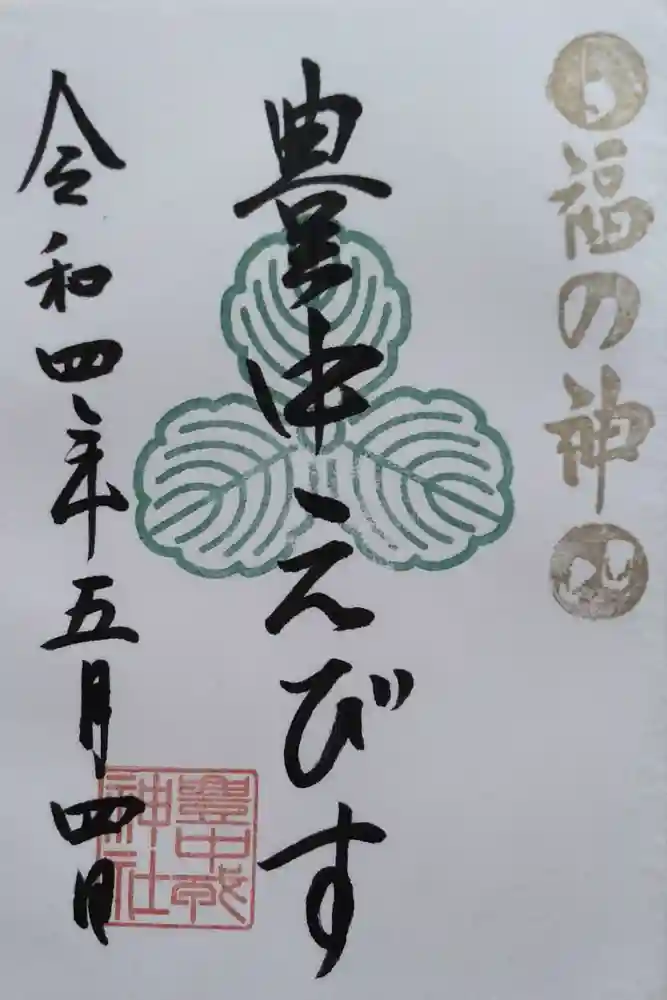 福の神
豊中えびす
令和四年五月四日
豐中戎
神社